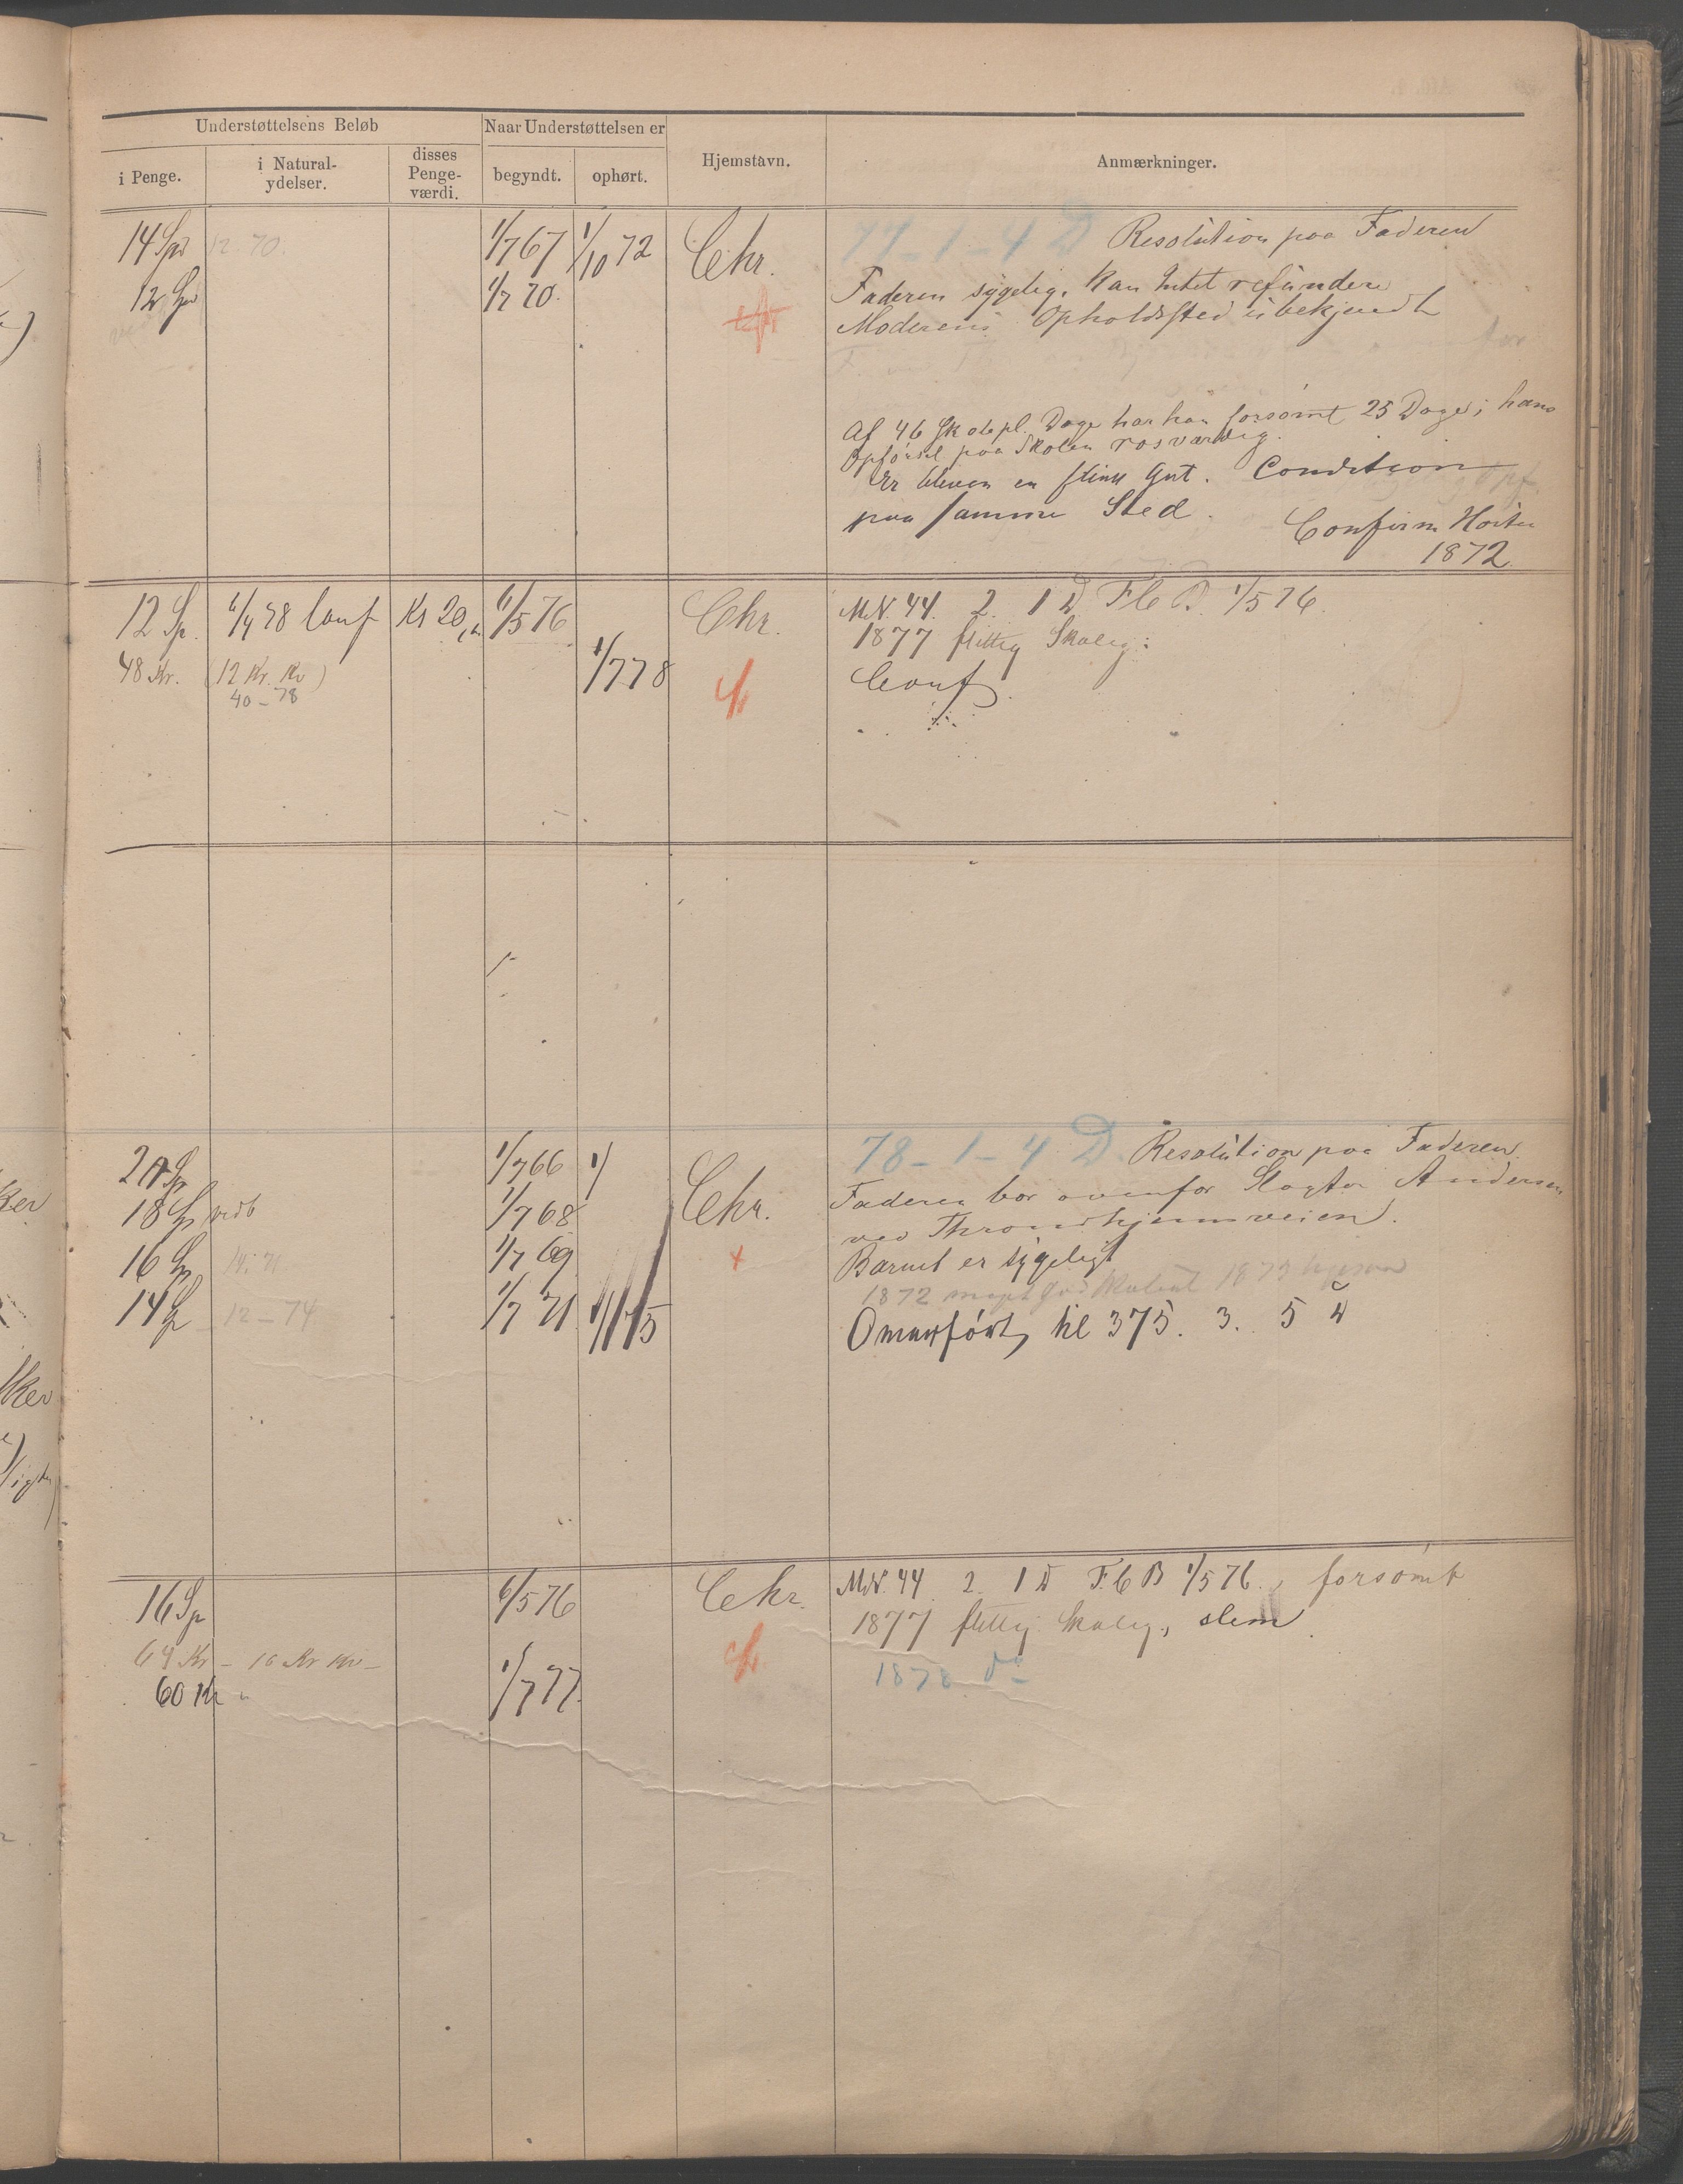 Understøttelsens Beløb
Naar Understøttelsen er
i Penge.
i Natural-
ydelser.
disses
Penge-
værdi.
begyndt.
ophørt.
Hjemstavn.
Anmærkninger.
14 Spd 12 - 70. 1/7 67 1/10 72 Chr. 77 - 1 - 4 D Resolution paa Faderen
12 Spd 1/7 70. Faderen sygelig. Kan Intet refundere
Moderens Opholdssted ubekjendt
Af 46 Skolepl. Dage har han forsømt 25 Dage; hans
Opførsel paa Skolen rosværdig.
Er bleven en flink Gut. Condition
paa samme Sted.
Confirm Høsten
1872
12 Sp. 6/4 78 conf Kr 20 6/5 76 Chr. M.N. 44. 2. 1 D F C B. 1/5 76.
48 Kr. (12 Kr. Kv) 1/7 78 1877 flittig Skoleg:
40 - 78
Conf.
20 Sp 1/7 66 1/ Chr. 78 - 1 - 4 D Resolution paa Faderen.
18 Sp 1/7 68 Faderen bor ovenfor Slagter Andersen
ved Throndhjemsveien.
16 Sp 14. 71 1/7 69 Barnet er sygeligt
1872 meget god 1873
14 Sp 12 - 74 1/7 71 1/1 75 Omanført, til 375. 3. 5
16 Sp 6/5 76 Chr. M.N. 44 2. 1 D F. C B 1/5 76., forsømt
1877 flittig Skoleg., slem
64 Kr - 16 Kr Kv -
60 Kr 1/7 77. 1878 do